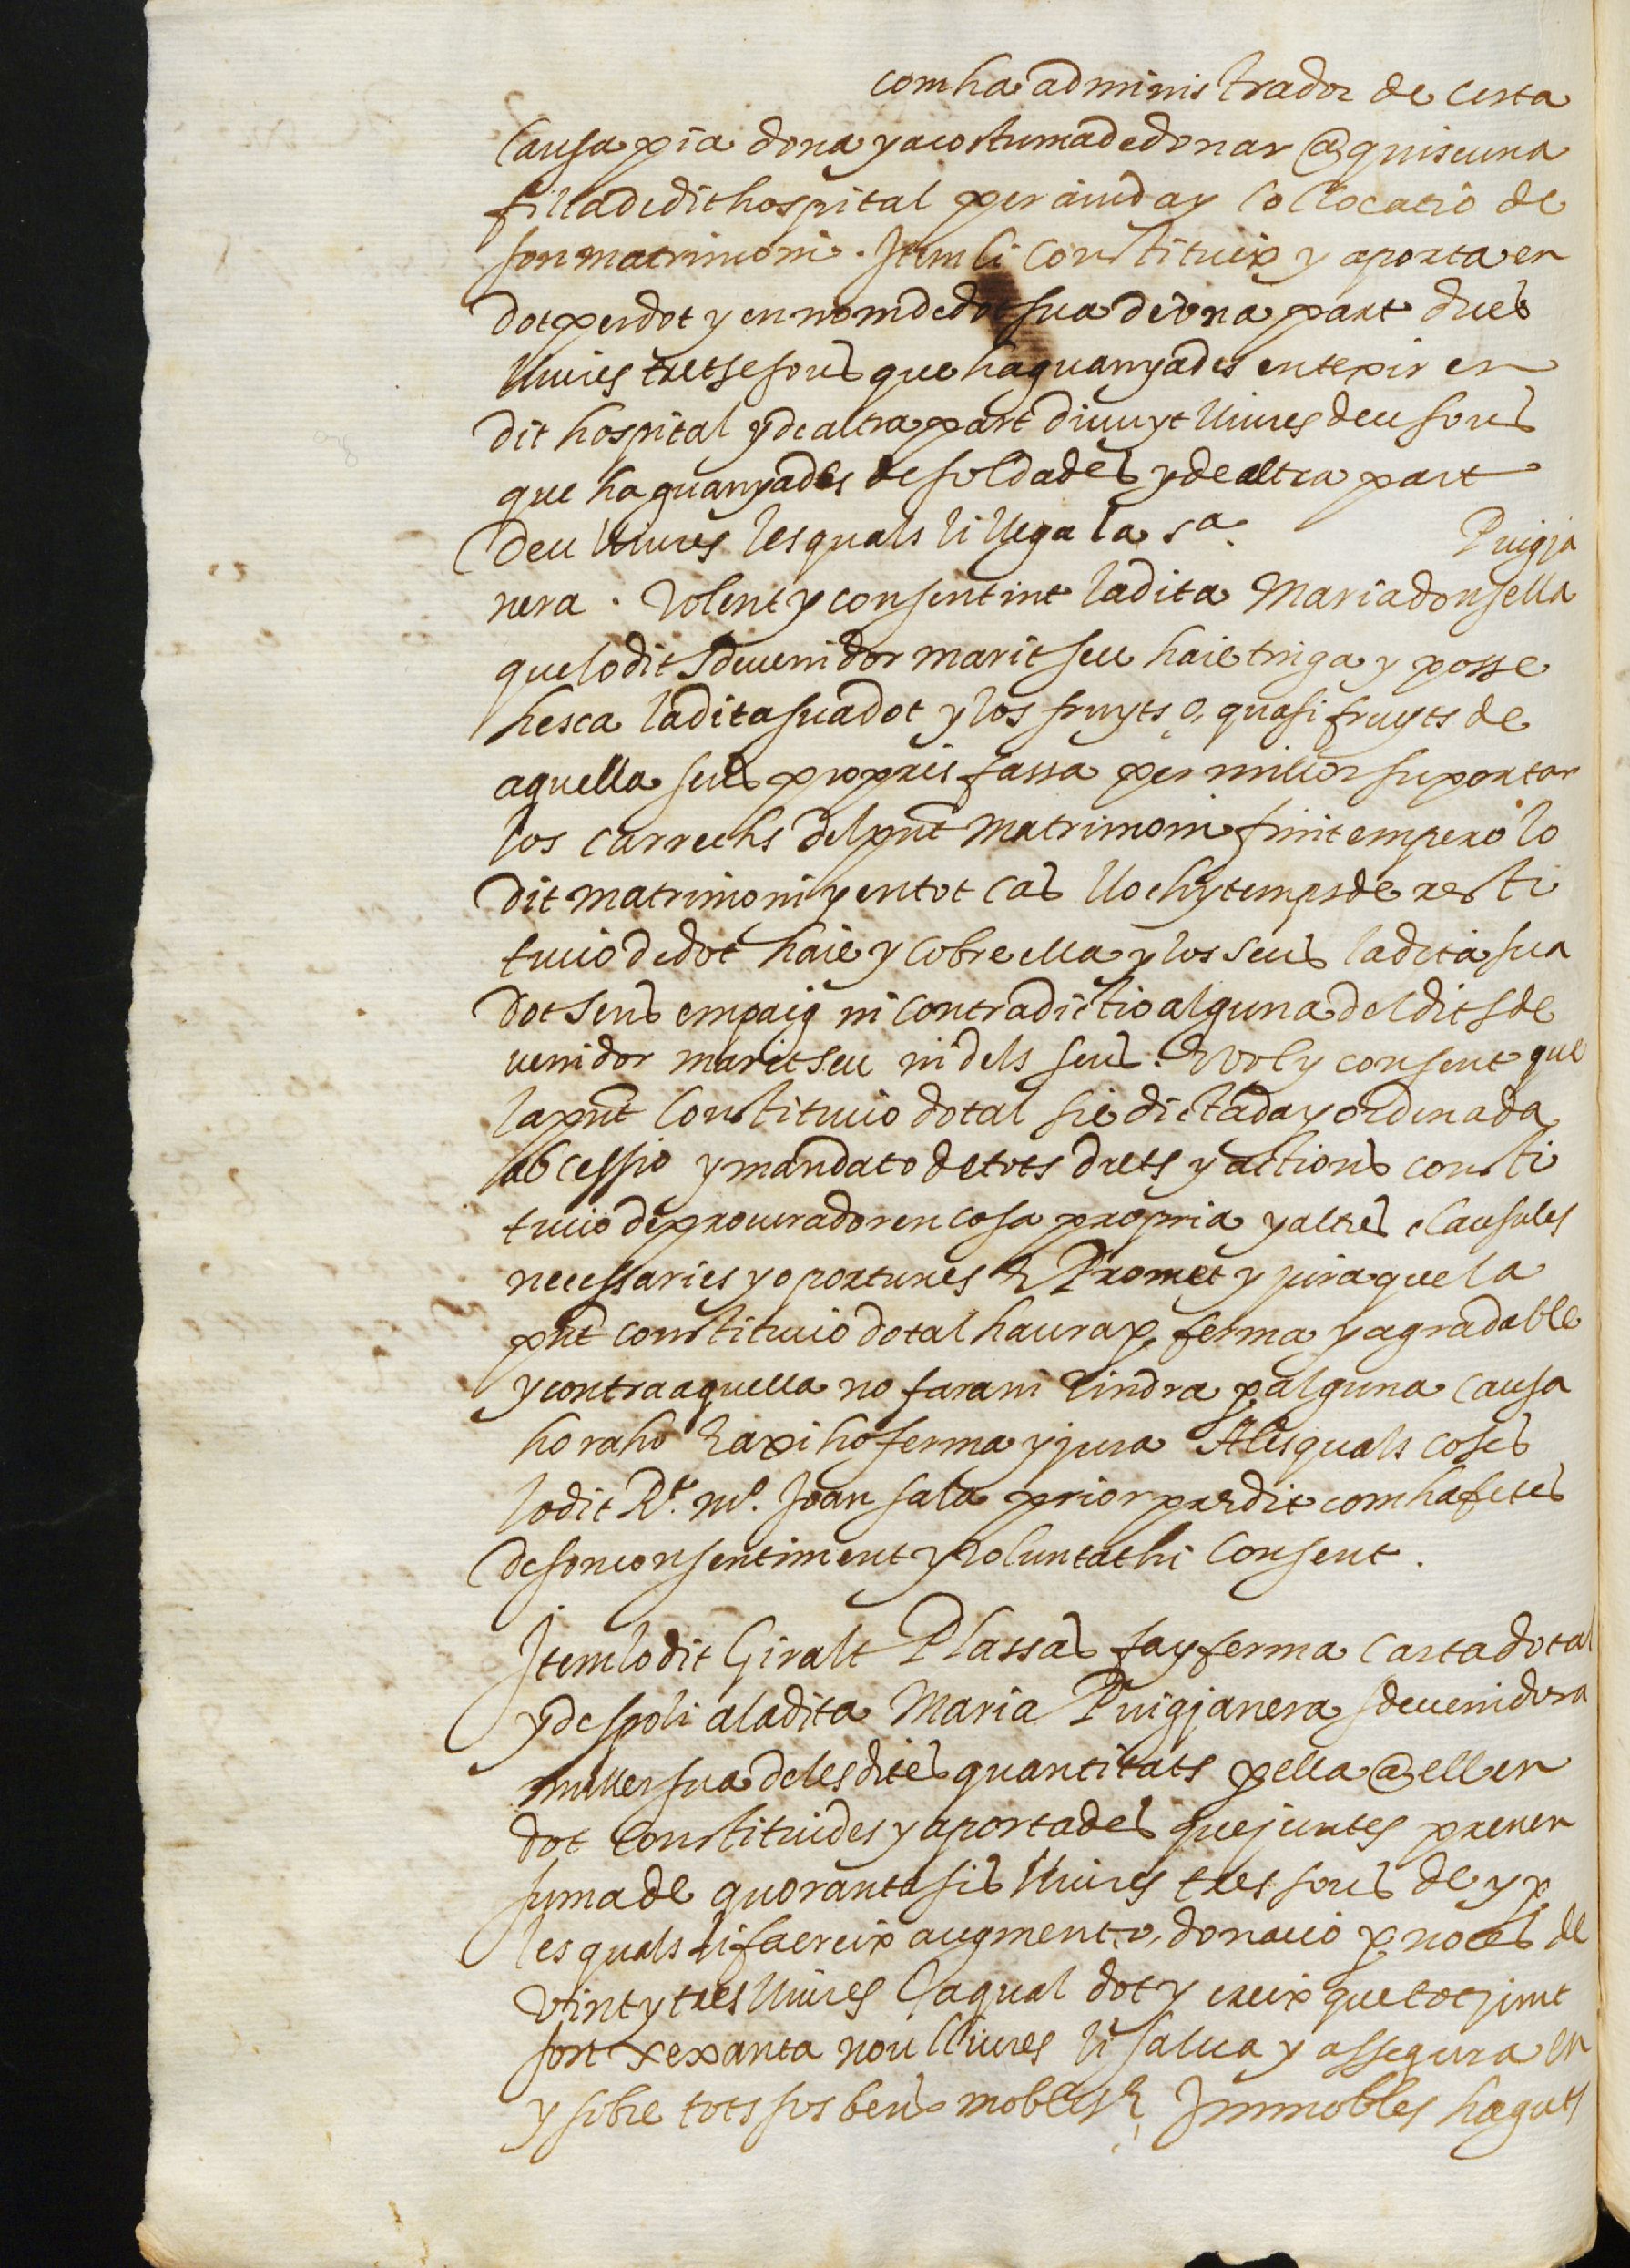 com ha administrador de certa
Causa pia dona y acostuma de donar @ quiscuna
filla de dit hospital per aiuda y collocatio de
son matrimoni. Item li constitueix y aporta en
dot per dot y en nom de dot sua de vna part dues
lliures tretse sous que ha guanyades en texir en
dit hospital y de altra part divuyt lliures deu sous
que ha guanyades de soldades y de altra part
deu lliures les quals li llega la sª. Puigja
nera. Volent y consentint la dita Maria donsella
que lo dit sdevenidor marit seu haie tinga y posse
hesca la dita sua dot y los fruyts o, quasi fruyts de
aquella seus propris fassa per millor suportar
los carrechs del pnt matrimoni finit empero lo
dit matrimoni y en tot cas lloch y temps de resti
tucio de dot haie y cobre ella y los seus la dita sua
dot sens empaig ni contradictio alguna del dit sde
venidor marit seu ni dels seus. E vol y consent que
la pnt constitucio dotal sie dictada y ordenada
ab cessio y mandato de tots drets y actions consti
tucio de procurador en cosa propria y altres clausules
necessaries y oportunes E Promet y jura que la
pnt constitucio dotal haura p ferma y agradable
y contra aquella no fara ni vindra p alguna causa
ho raho E axi ho ferma y jura A les quals coses
lo dit Rt. mº. Joan sala prior predit com ha fetes
de son consentiment y voluntat hi consent.
Item lo dit Giralt Plassas fa y ferma carta dotal
y de spoli a la dita Maria Puigjanera sdevenidora
muller sua de les dites quantitats p ella @ ell en
dot constituides y aportades que juntes prenen
suma de quoranta sis lliures tres sous de y p
les quals li fa creix augment o, donacio p noces de
vint y tres lliures La qual dot y creix que tot junt
son xexanta nou lliures li salva y assegura en
y sobre tots sos bens mobles E Immobles haguts